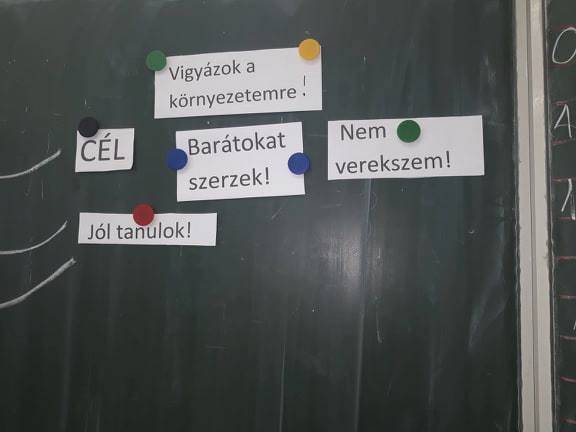 Vigyázok a
környezetemre !
CÉL
Barátokat
szerzek!
Nem
verekszem!
Jól tanulok!